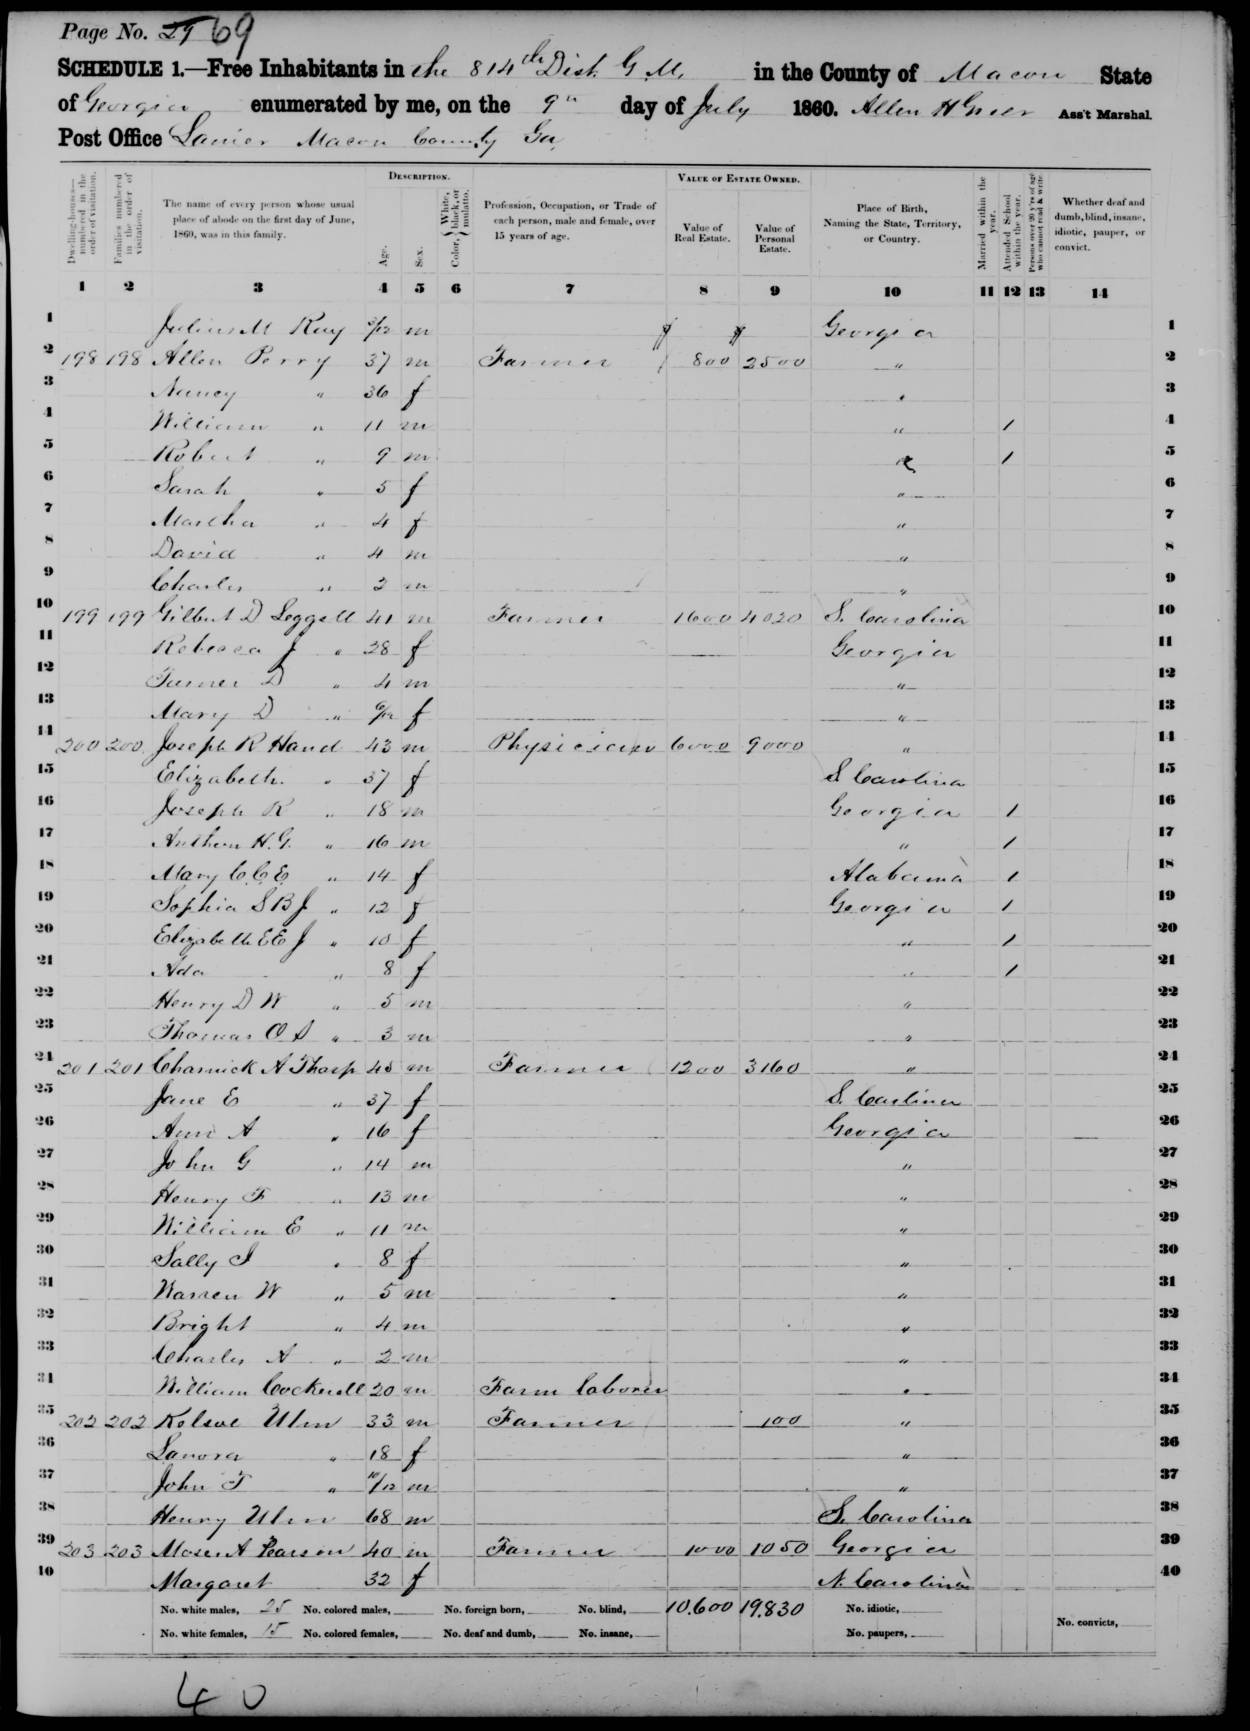 Page No. 29 69
SCHEDULE 1.—Free Inhabitants in the 814th Dist. G.M. in the County of Macon State
of Georgia enumerated by me, on the 9th day of July 1860. Allen H Greer Ass't Marshal.
Post Office Lanier Macon County Ga
Dwelling-houses—numbered in the order of visitation.
Families numbered in the order of visitation.
The name of every person whose usual place of abode on the first day of June, 1860, was in this family.
DESCRIPTION.
Age.
Sex.
Color, { White, black, or mulatto.
Profession, Occupation, or Trade of each person, male and female, over 15 years of age.
VALUE OF ESTATE OWNED.
Value of Real Estate.
Value of Personal Estate.
Place of Birth, Naming the State, Territory, or Country.
Married within the year.
Attended School within the year.
Persons over 20 y'rs of age who cannot read & write.
Whether deaf and dumb, blind, insane, idiotic, pauper, or convict.
1 2 3 4 5 6 7 8 9 10 11 12 13 14
1 Julius M Ray /12 m Georgia 1
2 198 198 Allen Perry 37 m Farmer 800 2500 " 2
3 Nancy " 36 f " 3
4 William " 11 m " 1 4
5 Robert " 9 m " 1 5
6 Sarah " 5 f " 6
7 Martha " 4 f " 7
8 David " 4 m " 8
9 Charles " 2 m " 9
10 199 199 Gilbert D Leggett 41 m Farmer 1600 4020 S. Carolina 10
11 Rebecca J " 28 f Georgia 11
12 Turner D " 4 m " 12
13 Mary D " 9/12 f " 13
14 200 200 Joseph R Hand 43 m Physician 6000 9000 " 14
15 Elizabeth " 37 f S Carolina 15
16 Joseph R " 18 m Georgia 1 16
17 Anthon H.G. " 16 m " 1 17
18 Mary C.C.E. " 14 f Alabama 1 18
19 Sophia S B J " 12 f Georgia 1 19
20 Elizabeth E E J " 10 f " 1 20
21 Ada " 8 f " 1 21
22 Henry D W " 5 m " 22
23 Thomas O S " 3 m " 23
24 201 201 Charnick A Tharp 45 m Farmer 1200 3160 " 24
25 Jane E " 37 f S. Carlina 25
26 Ann A " 16 f Georgia 26
27 John G " 14 m " 27
28 Henry F " 13 m " 28
29 William E " 11 m " 29
30 Sally I " 8 f " 30
31 Warren W " 5 m " 31
32 Bright " 4 m " 32
33 Charles A " 2 m " 33
34 William Cocknell 20 m Farm laborer " 34
35 202 202 Kelsoe Ulm 33 m Farmer 100 " 35
36 Lanora " 18 f " 36
37 John F " 10/12 m " 37
38 Henry Ulm 68 m S. Carolina 38
39 203 203 Moses A Pearson 40 m Farmer 1000 1050 Georgia 39
40 Margaret 32 f N. Carolina 40
No. white males, 25 No. colored males, No. foreign born, No. blind, 10.600 19.830 No. idiotic,
No. white females, 15 No. colored females, No. deaf and dumb, No. insane, No. paupers, No. convicts,
40